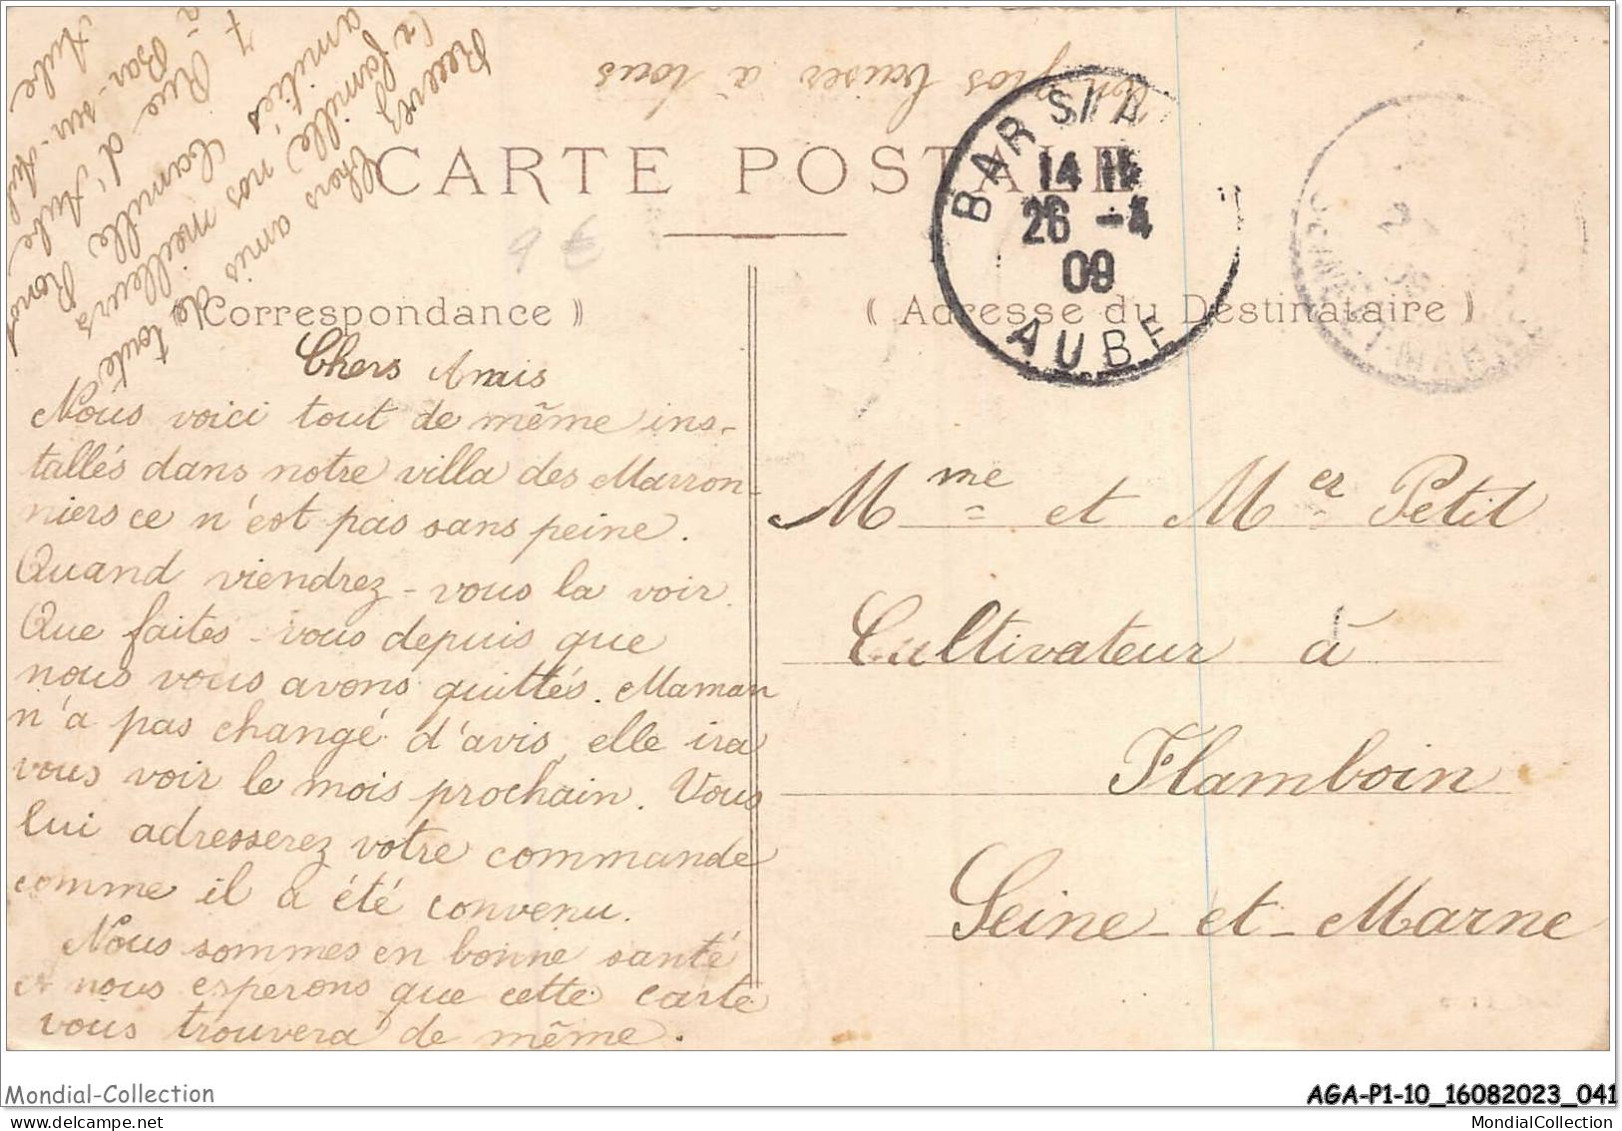 Recevez Chers amis de toute
la famille nos meilleurs
amitiés Camille Ronot
7 Rue d'Aube
à Bar-sur-Aube
Aube
Un gros baiser à tous
CARTE POSTALE
9 €
BAR S/ A
14 H
26 - 4
09
AUBE
(Correspondance)
(Adresse du Destinataire)
Chers Amis
Nous voici tout de même ins-
tallés dans notre villa des Marron-
niers ce n'est pas sans peine.
Quand viendrez-vous la voir.
Que faites-vous depuis que
nous vous avons quittés. Maman
n'a pas changé d'avis, elle ira
vous voir le mois prochain. Vous
lui adresserez votre commande
comme il a été convenu.
Nous sommes en bonne santé
et nous esperons que cette carte
vous trouvera de même.
Mme et Mer Petit
Cultivateur à
Flamboin
Seine-et-Marne
Mondial-Collection
AGA-P1-10_16082023_041
MondialCollection